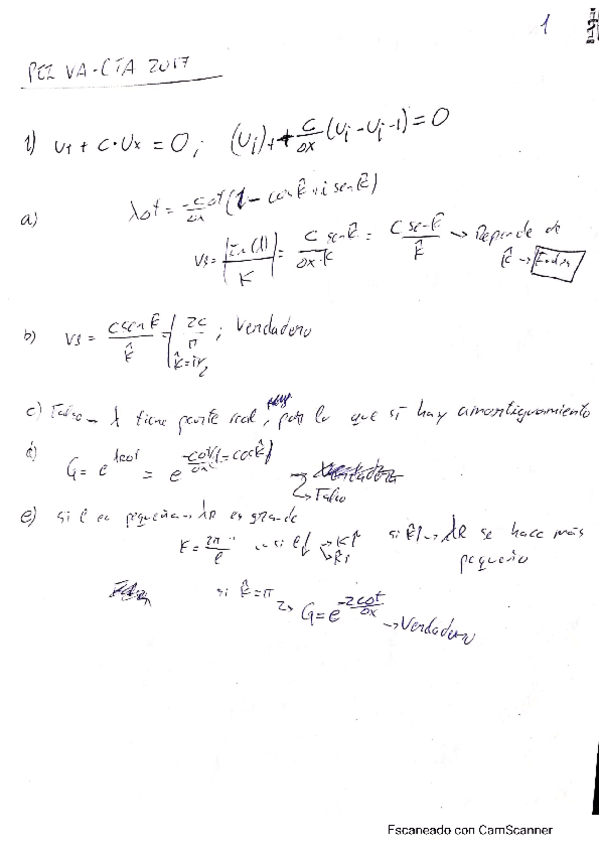 1
PEZ VA-CTA 2017
1) Ut + C·Ux = 0; (Ui)t + C/Δx (Ui - Ui-1) = 0
a) λΔt = -CΔt/Δx (1 - cos k̂ + i sen k̂)
Vs = |Im(λ)|/K = C sen k̂/Δx·K = C sen k̂/k̂ → Depende de
k̂ →
b) Vs = C sen k̂/k̂ | k̂=π/2 = 2C/π; Verdadero
c) Falso - λ tiene parte real, por lo que si hay amortiguamiento
d) G = e^λRΔt = e^-CΔt/Δx (1-cos k̂)
→ Falso
e) si l es pequeña → λR es grande
K = 2π/l → si l↓ → K↑ → k̂↑ si k̂↑ → λR se hace más
pequeño
si k̂ = π → G = e^-2CΔt/Δx → Verdadero
Escaneado con CamScanner